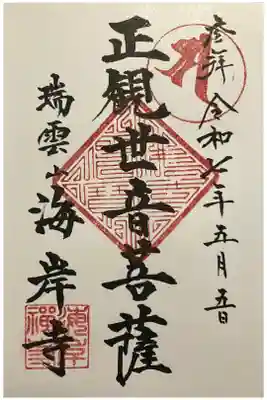 参拝 令和七年五月五日
正観世音菩薩
瑞雲山海岸寺